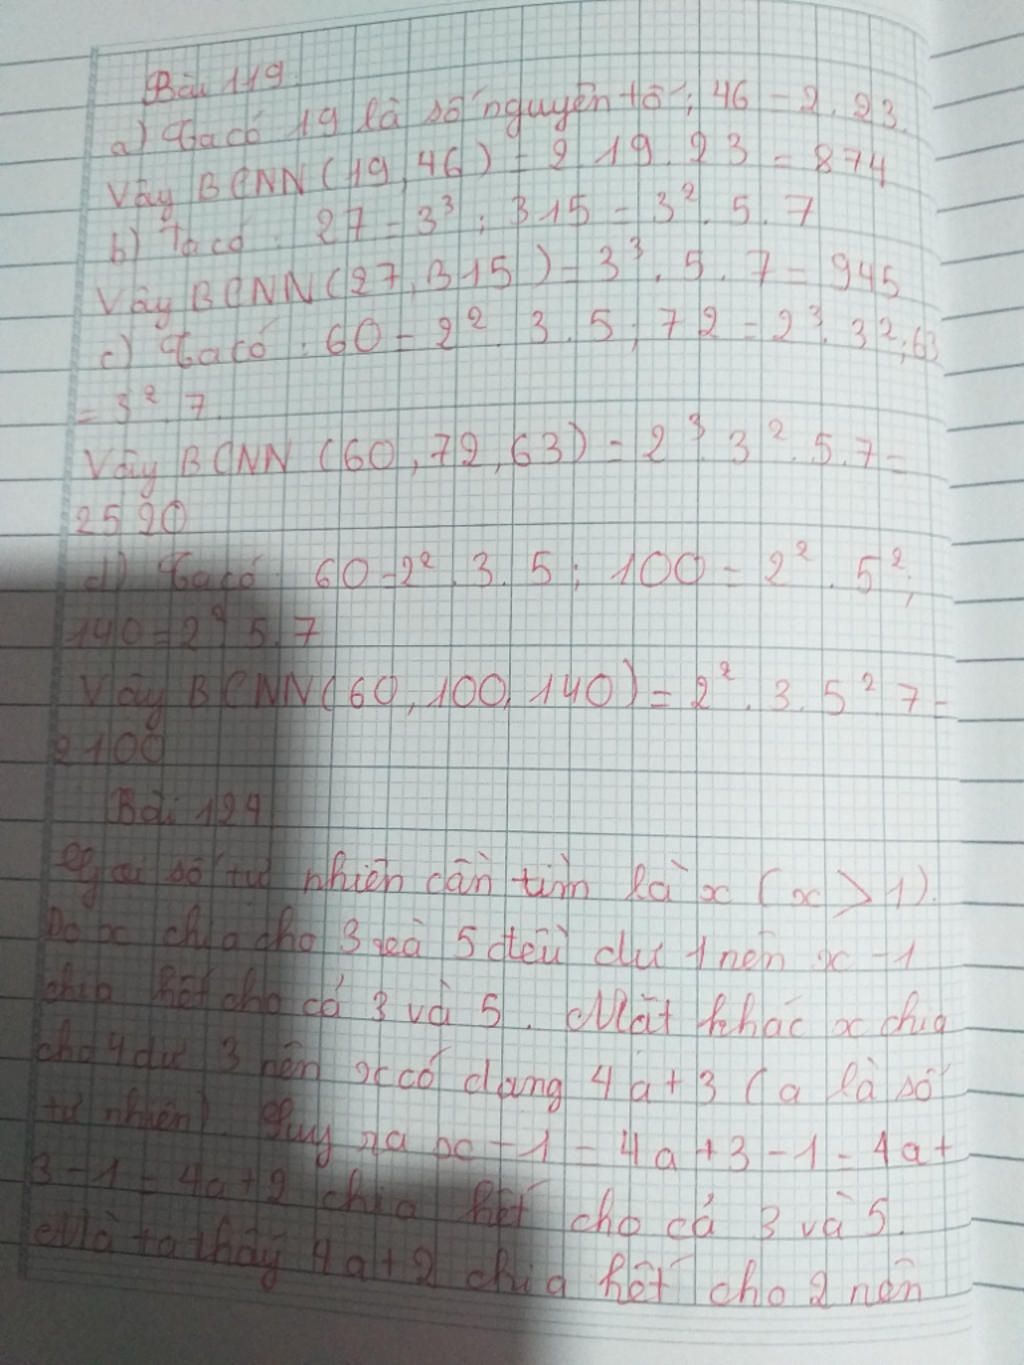 Bài 119.
a) Ta có 19 là số nguyên tố; 46 = 2.23.
Vậy BCNN(19,46) = 2.19.23 = 874
b) Ta có: 27 = 3³; 315 = 3².5.7
Vậy BCNN(27,315) = 3³.5.7 = 945
c) Ta có: 60 = 2².3.5; 72 = 2³.3²; 63
= 3².7.
Vậy BCNN (60,72,63) = 2³.3².5.7 =
2520
d) Ta có 60 = 2².3.5; 100 = 2².5²;
140 = 2².5.7
Vậy BCNN(60,100,140) = 2².3.5².7 =
2100
Bài 124
Gọi số tự nhiên cần tìm là x (x > 1).
Do x chia cho 3 và 5 đều dư 1 nên x - 1
chia hết cho cả 3 và 5. Mặt khác x chia
cho 4 dư 3 nên x có dạng 4a + 3 (a là số
tự nhiên). Suy ra x - 1 = 4a + 3 - 1 = 4a +
3 - 1 = 4a + 2 chia hết cho cả 3 và 5.
Mà ta thấy 4a + 2 chia hết cho 2 nên